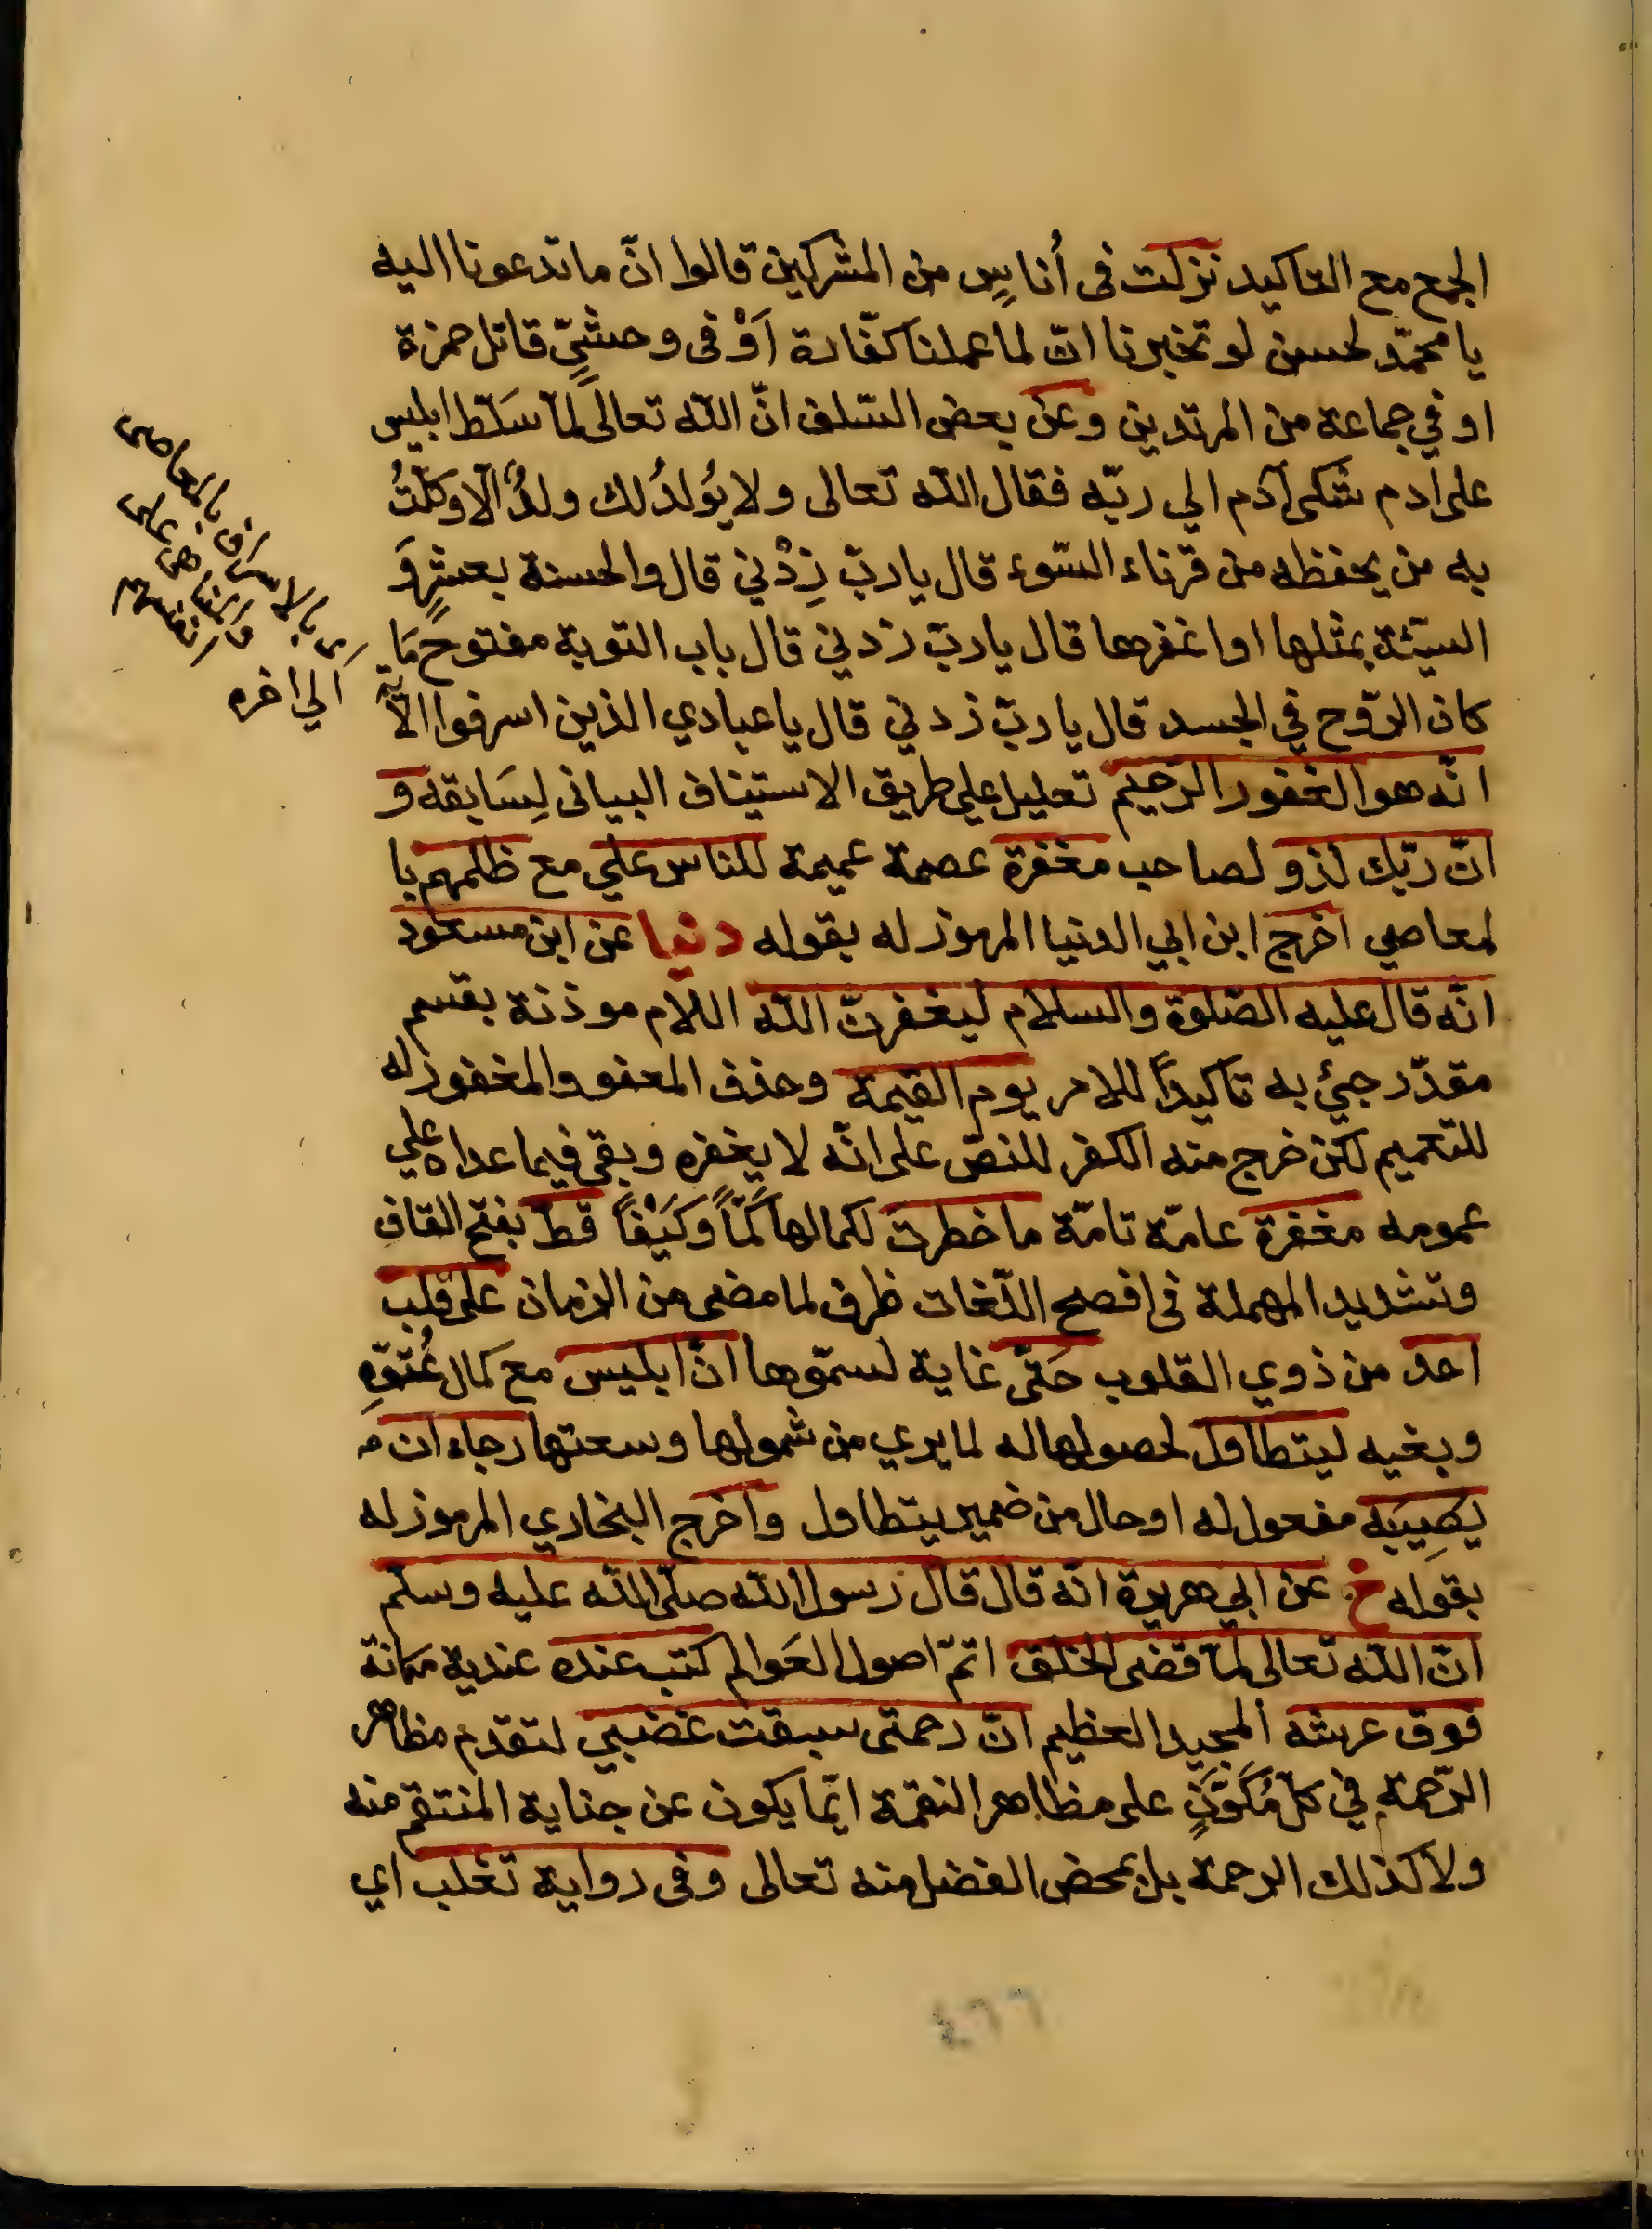 الجمع مع التاكيد نزلت فى أُناسٍ من المشركين قالوا انّ ما تدعونا اليه
يا محمّد لحسن لو تخبرنا انّ لما عملنا كفّارة اَوْ فى وحشىٍّ قاتل حمزة
او في جماعة من المرتدين وعن بعض السّلف انّ الله تعالى لمّا سَلّط ابليس
على ادم شكى آدم الي ربّه فقال الله تعالى ولا يُولدُ لك ولدٌ الّا وكّلتُ
به من يحفظه من قرناء السّوء قال يا ربّ زِدْني قال والحسنة بعشرٍ وَ
السيّئة بمثلها او اغفرها قال يا ربّ زدني قال باب التوبة مفتوح مَا
كان الرّوح في الجسد قال يا ربّ زدني قال يا عبادي الذين اسرفوا الآية
انّه هو الغفور الرّحيم تعليل على طريق الاستيناف البيانى لِسَابقه و
انّ ربّك لذو لصاحب مغفرة عصمة عميمة للناس علي مع ظلمهم با
لمعاصي اخرج ابن ابي الدنيا المرموز له بقوله دنيا عن ابن مسعود
انّه قال عليه الصّلوة والسلام ليغفرنّ الله اللّام موذنة بقسم
مقدّر جئ به تاكيداً للامر يوم القيمة وحذف المعفو والمغفور له
للتعميم لكن خرج منه الكفر للنصّ على انّه لا يغفره وبقى فيما عداه علي
عمومه مغفرة عامّة تامّة ما خطرت لكمالها كَمّاً وكَيْفاً قطّ بفتح القاف
وتشديد المهملة فى افصح اللّغات ظرف لما مضى من الزمان على قلب
احد من ذوي القلوب حَتّى غاية لسموّها انّ ابليس مع كمال عُتوّهِ
وبغيه ليتطاول لحصولها له لما يري من شمولها وسعتها رجاء ان
يصِيبَه مفعول له او حال من ضمير يتطاول واخرج البخاري المرموز له
بقوله خ عن ابي هريرة انّه قال قال رسول الله صلّى الله عليه وسلّم
انّ الله تعالى لمّا قضى الخلق اتمّ اصول العَوالم كتب عنده عندية مكانة
فوق عرشه المجيد العظيم انّ رحمتى سبقت غضبي لتقدم مظاهر
الرّحمة في كلّ مُكَوَّنٍ على مظاهر النقمة انّما يكون عن جناية المنتقم منه
ولا كذلك الرحمة بل بمحض الفضل منه تعالى وفى رواية تغلب اي
بالاسراف بالمعاصى
على
انفسهم
الي اخره